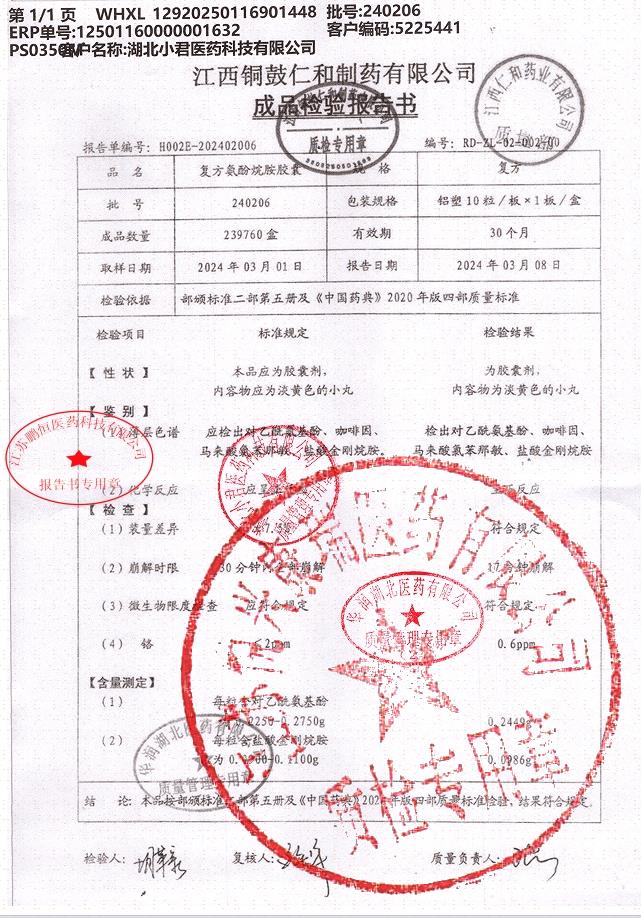 第 1/1 页 WHXL 12920250116901448 批号:240206
ERP单号:12501160000001632 客户编码:5225441
客户名称:湖北小君医药科技有限公司
江西铜鼓仁和制药有限公司
成品检验报告书
质检专用章
江西仁和药业有限公司
报告单编号: H002E-202402006 编号: RD-ZL-02-002-00
品 名 复方氨酚烷胺胶囊 规 格 复方
批 号 240206 包装规格 铝塑10粒/板×1板/盒
成品数量 239760 盒 有效期 30 个月
取样日期 2024 年 03 月 01 日 报告日期 2024 年 03 月 08 日
检验依据 部颁标准二部第五册及《中国药典》2020 年版四部质量标准
检验项目 标准规定 检验结果
【 性 状 】 本品应为胶囊剂， 为胶囊剂，
内容物应为淡黄色的小丸 内容物为淡黄色的小丸
【 鉴 别 】
(1) 薄层色谱 应检出对乙酰氨基酚、咖啡因、 检出对乙酰氨基酚、咖啡因、
马来酸氯苯那敏、盐酸金刚烷胺。 马来酸氯苯那敏、盐酸金刚烷胺
江苏鹏恒医药科技有限公司
报告书专用章
(2) 化学反应
【 检 查 】
(1) 装量差异 符合规定
(2) 崩解时限 30 分钟内全部崩解 17 分钟崩解
(3) 微生物限度检查 应符合规定 符合规定
华润湖北医药有限公司
质量管理专用章
(4) 铬 <2ppm 0.6ppm
【含量测定】
(1) 每粒含对乙酰氨基酚
0.2250-0.2750g 0.2449g
(2) 每粒含盐酸金刚烷胺
0.0986g
华润湖北医药有限
质量管理专用章
结 论: 本品按部颁标准二部第五册及《中国药典》2020 年版四部质量标准检验，结果符合规定。
质检专用章
检验人: 复核人: 质量负责人: